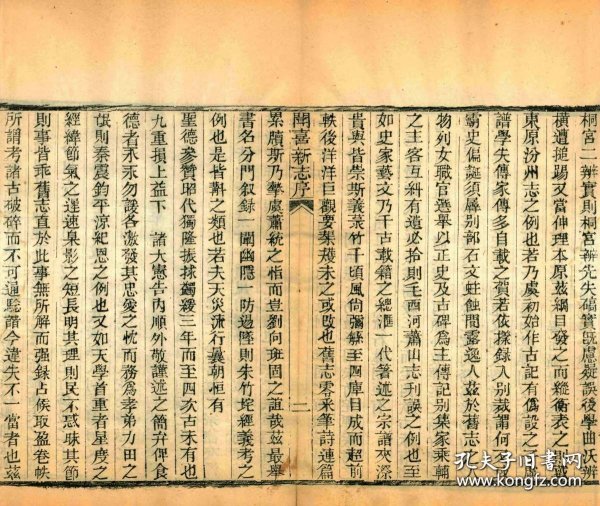 桐宮二辨實則桐宮辨先失礄實旣慮疑誤後學曲沃辨
橫遭搥踢又當伸理本原茲綱目發之而縱衡表之戴
東原汾州志之例也若乃處初始作古記有僞設之虛
譜學失傳家傳多自載之賀若依採錄入別裁謂何之
霸史偏誕須屏別部石文蛀蝕間露逸人茲於舊志人
物列女職官選舉以正史及古碑爲主傳記別集家乘輔
之主客互糾有違必摋則毛酉河蕭山志刊誤之例也
如史家藝文乃千古載籍之總滙一代著述之宗譜夾漈
貴與皆崇斯義菉竹千頃風尙彌鯀至四庫目成而超前
軼後洋洋巨觀要槩穫未之或改也舊志零米筆詩連篇
聞喜新志序
二
累牘斯乃擧虞蕭統之恉而豈劉向班固之誼哉茲最舉
書名分門叙錄一闡幽隱一防遏墜則朱竹垞經義考之
例也是皆斠之類也若夫天災流行曩朝恒有
聖德參贊昭代獨隆振捄蠲緩三年而至四次古未有也
九重損上益下　諸大憲告內順外敬謹述之簡弁俾食
德者永永勿諼各激發其忠愛之忱而務爲孝弟力田之
氓則秦震鈞平涼紀恩之例也又如天學首重者星度之
經緯節氣之遲速晷影之短長明其理則民不惑昧其節
則事皆乖舊志直於此事無所解而强錄占候取盈卷帙
所謂考諸古破碎而不可通驗諸今違失不一當者也茲
孔夫子旧书网
www.kongfz.com